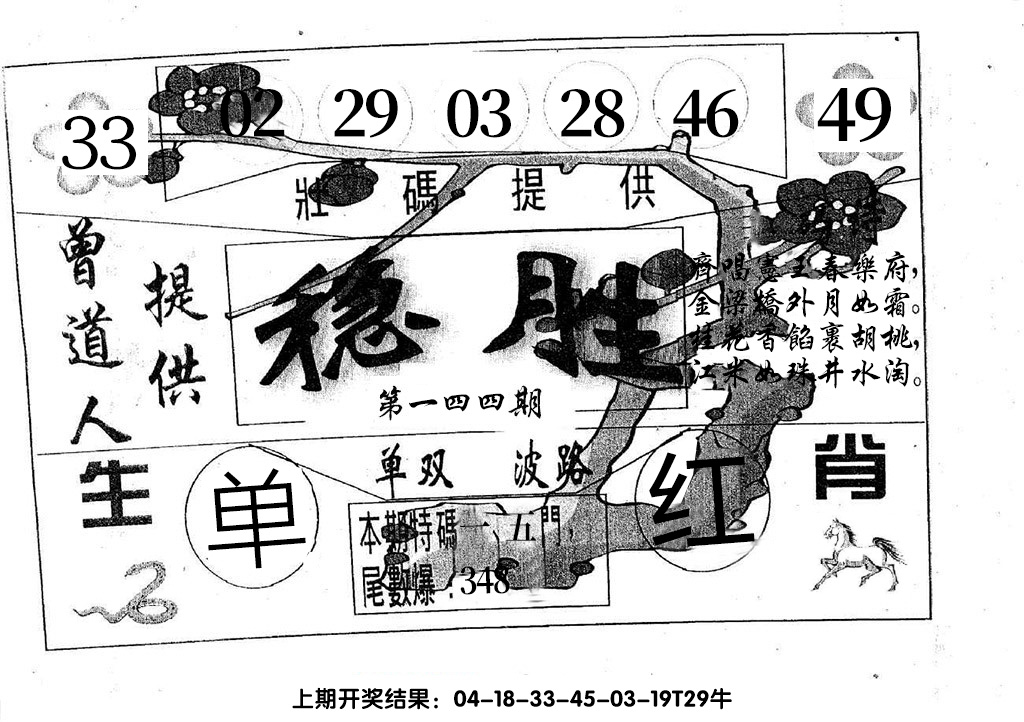 33 02 29 03 28 46 49
壯碼提供
特
曾道人
提供
稳胜
第一四四期
齊唱憲王春樂府,
金梁橋外月如霜。
桂花香餡裹胡桃,
江米如珠井水淘。
单双 波路
生肖
单
红
本期特碼一、五門,
尾數爆:348
上期开奖结果:04-18-33-45-03-19T29牛